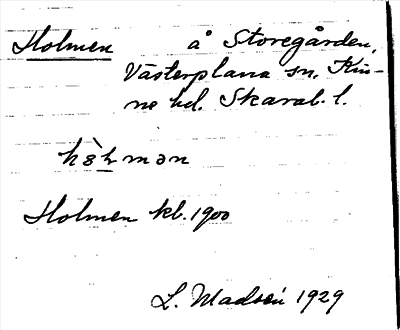 Holmen å Storegården,
Västerplana sn, Kin-
ne hd. Skarab. l.
Holmen kb. 1900
L. Madsén 1929